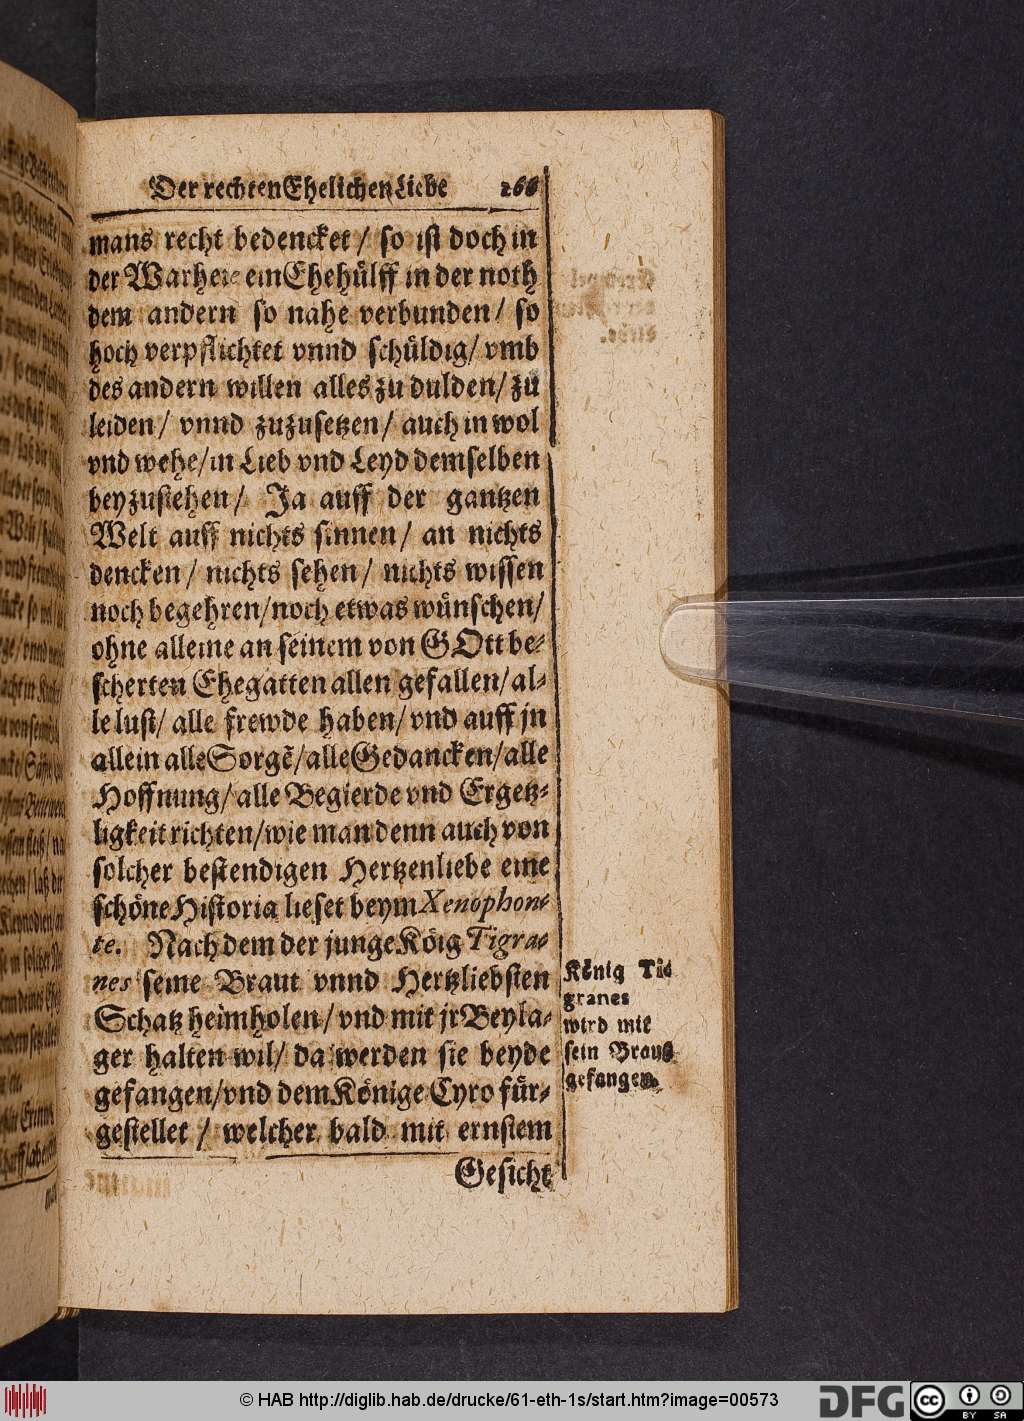 Der rechten Ehelichen Liebe 266
mans recht bedencket / so ist doch in
der Warheit ein Ehehülff in der noth
dem andern so nahe verbunden / so
hoch verpflichtet vnnd schüldig / vmb
des andern willen alles zu dulden / zu
leiden / vnnd zuzusetzen / auch in wol
vnd wehe / in Lieb vnd Leyd demselben
beyzustehen / Ja auff der gantzen
Welt auff nichts sinnen / an nichts
dencken / nichts sehen / nichts wissen
noch begehren / noch etwas wünschen /
ohne alleine an seinem von GOtt be-
scherten Ehegatten allen gefallen / al-
le lust / alle frewde haben / vnd auff jn
allein alle Sorgē / alle Gedancken / alle
Hoffnung / alle Begierde vnd Ergetz-
ligkeit richten / wie man denn auch von
solcher bestendigen Hertzenliebe eine
schöne Historia lieset beym Xenophon-
te. Nach dem der junge Köig Tigra-
nes seine Braut vnnd Hertzliebsten
Schatz heimholen / vnd mit jr Beyla-
ger halten wil / da werden sie beyde
gefangen / vnd dem Könige Cyro für-
gestellet / welcher bald mit ernstem
Gesicht
König Ti-
granes
wird mit
sein Braut
gefangen.
© HAB http://diglib.hab.de/drucke/61-eth-1s/start.htm?image=00573
DFG
cc BY SA